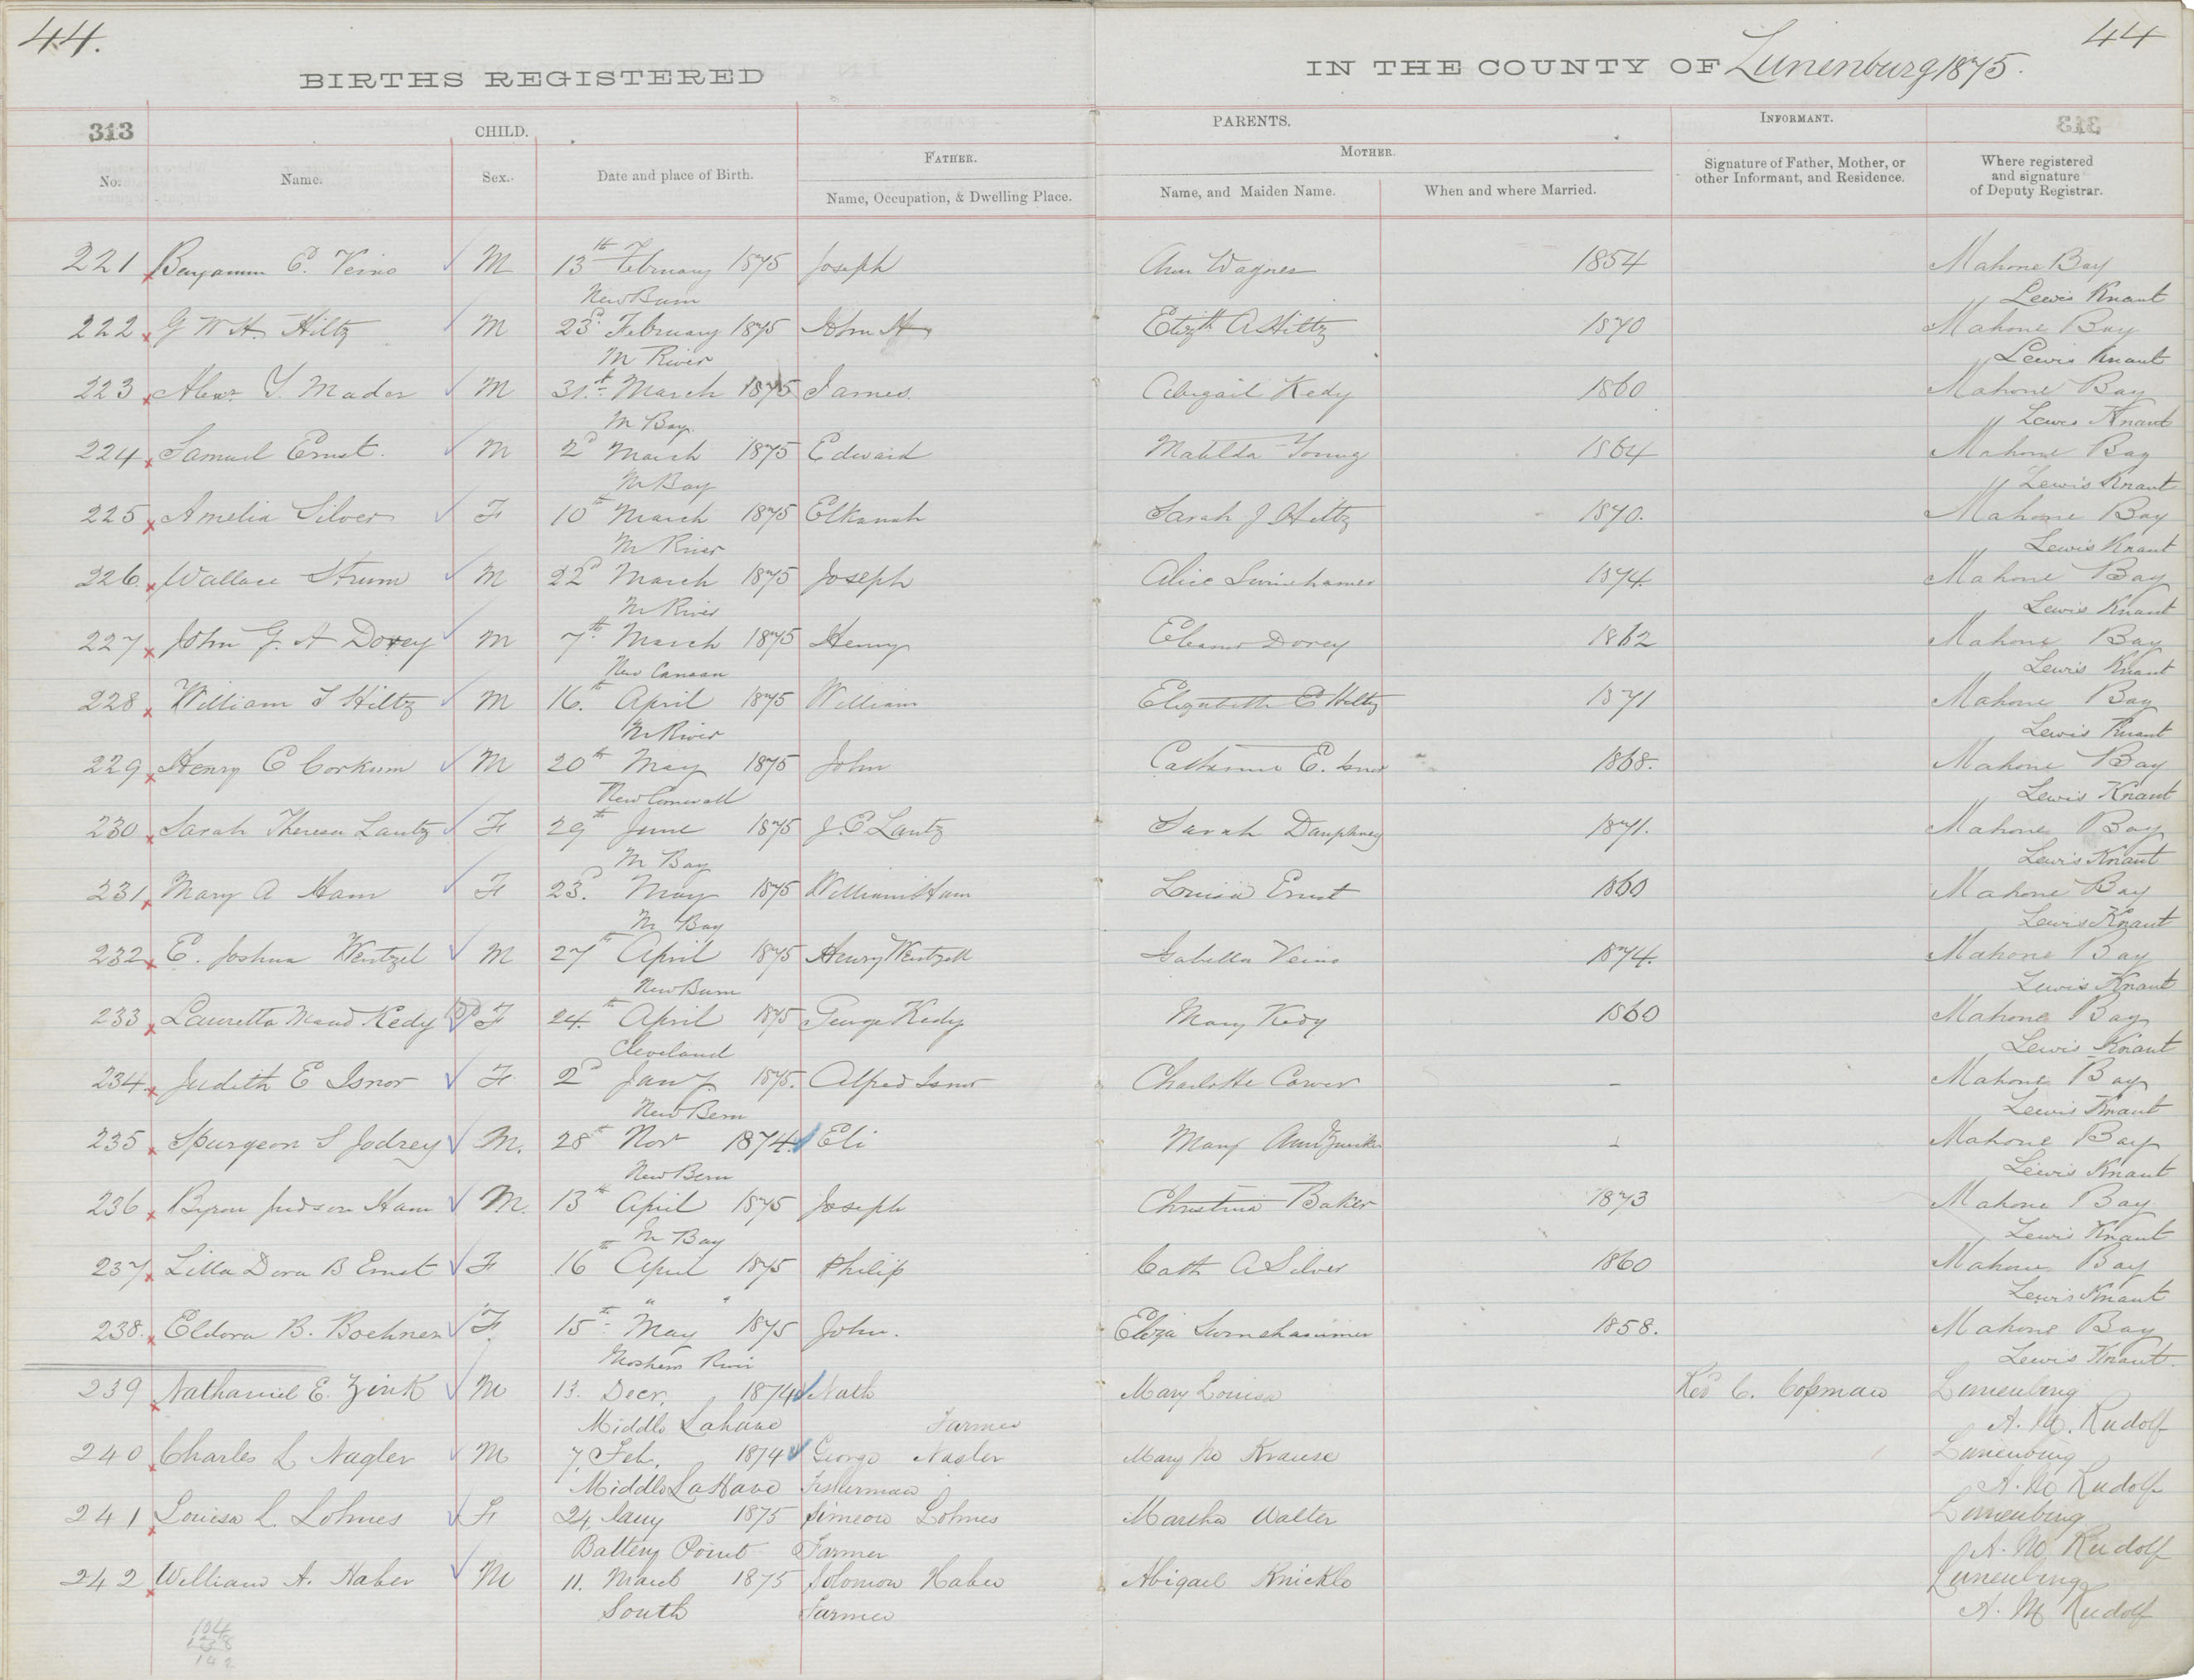 44.
44
BIRTHS REGISTERED
IN THE COUNTY OF Lunenburg 1875.
313
CHILD.
PARENTS.
INFORMANT.
FATHER.
MOTHER.
No.
Name.
Sex.
Date and place of Birth.
Name, Occupation, & Dwelling Place.
Name, and Maiden Name.
When and where Married.
Signature of Father, Mother, or
other Informant, and Residence.
Where registered
and signature
of Deputy Registrar.
221 Benjamin E. Veino M 13th February 1875 Joseph Ann Wagner 1854 Mahone Bay
New Burn Lewis Knaut
222 G W H. Hiltz M 23d February 1875 John H Elizth A Hiltz 1870 Mahone Bay
M River Lewis Knaut
223 Alexr. Y. Mader M 31st March 1875 James. Abigail Kedy 1860 Mahone Bay
M Bay. Lewis Knaut
224 Samuel Ernst. M 2d March 1875 Edward Matilda Young 1864 Mahone Bay
M Bay Lewis Knaut
225 Amelia Silver F 10th March 1875 Elkanah Sarah J Hiltz 1870. Mahone Bay
M River Lewis Knaut
226. Wallace Strum M 22d March 1875 Joseph Alice Swinehamer 1874. Mahone Bay
M River Lewis Knaut
227 John G. A Dorey M 7th March 1875 Henry Eleanor Dorey 1862 Mahone Bay
New Canaan Lewis Knaut
228 William S Hiltz M 16th April 1875 William Elizabeth E Hiltz 1871 Mahone Bay
M River Lewis Knaut
229 Henry C Corkum M 20th May 1875 John Catharine E. Isnor 1868. Mahone Bay
New Cornwall Lewis Knaut
230 Sarah Theresa Lantz F 29th June 1875 J. E Lantz Sarah Dauphney 1871. Mahone Bay
M Bay Lewis Knaut
231 Mary A Ham F 23d May 1875 William Ham Louisa Ernst 1860 Mahone Bay
M Bay Lewis Knaut
232 E. Joshua Wentzel M 27th April 1875 Henry Wentzell Isabella Veino 1874. Mahone Bay
New Burn Lewis Knaut
233 Lauretta Maud Kedy F 24th April 1875 George Kedy Mary Kedy 1860 Mahone Bay
Cleveland Lewis Knaut
234. Judith E Isnor F 2d Jany 1875. Alfred Isnor Charlotte Carver – Mahone Bay
New Bern Lewis Knaut
235 Spurgeon S Jodrey M. 28th Nov 1874. Eli Mary Ann Zwicker – Mahone Bay
New Bern Lewis Knaut
236 Byron Judson Ham M. 13th April 1875 Joseph Christina Baker 1873 Mahone Bay
M Bay Lewis Knaut
237 Lilla Dora B Ernst F 16th April 1875 Philip Cath A Silver 1860 Mahone Bay
" " Lewis Knaut
238. Eldora B. Boehner F 15th May 1875 John. Eliza Swinehammer 1858. Mahone Bay
Mushem River Lewis Knaut.
239 Nathaniel E. Zink M 13. Decr. 1874 Nath Mary Louisa Revd C. Cossman Lunenburg
Middle Lahave Farmer A. M. Rudolf
240 Charles L Nagler M 7. Feb. 1874 George Nagler Mary M Krause Lunenburg
Middle LaHave Fisherman A. M Rudolf
241 Louisa L. Lohnes F 24. Jany 1875 Simeon Lohnes Martha Walter Lunenburg
Battery Point Farmer A. M Rudolf
242 William A. Haber M 11. March 1875 Solomon Haber Abigail Knickle Lunenburg
South Farmer A. M Rudolf
104
142